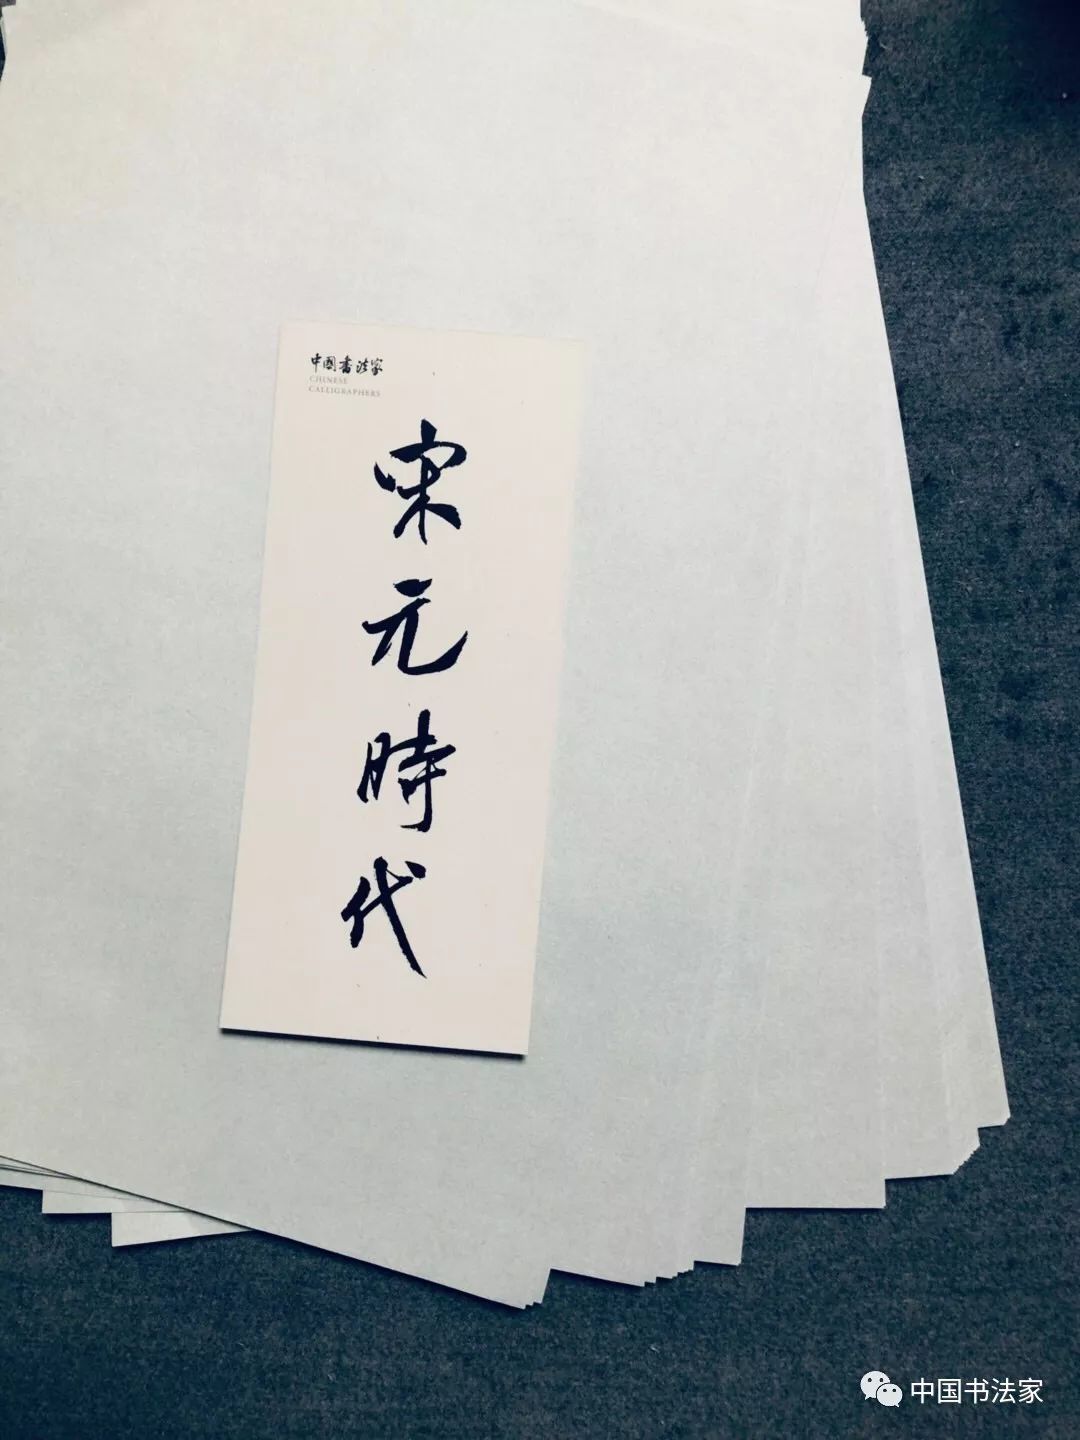 中國書法家
CHINESE
CALLIGRAPHERS
宋元時代
中国书法家